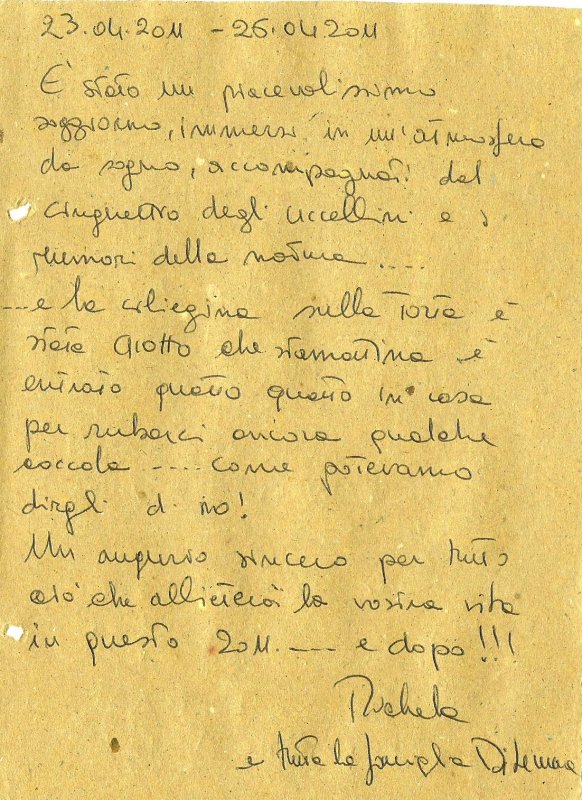 23.04.2011 - 26.04.2011
E' stato un piacevolissimo
soggiorno, immersi in un'atmosfera
da sogno, accompagnati dal
cinguettio degli uccellini e i
rumori della natura ....
... e la ciliegina sulla torta è
stata Giotto che stamattina è
entrato quatto quatto in casa
per rubarci ancora qualche
coccola ..... come potevamo
dirgli di no!
Un augurio sincero per tutto
ciò che allieterà la vostra vita
in questo 2011 .... e dopo!!!
Michela
e tutta la famiglia